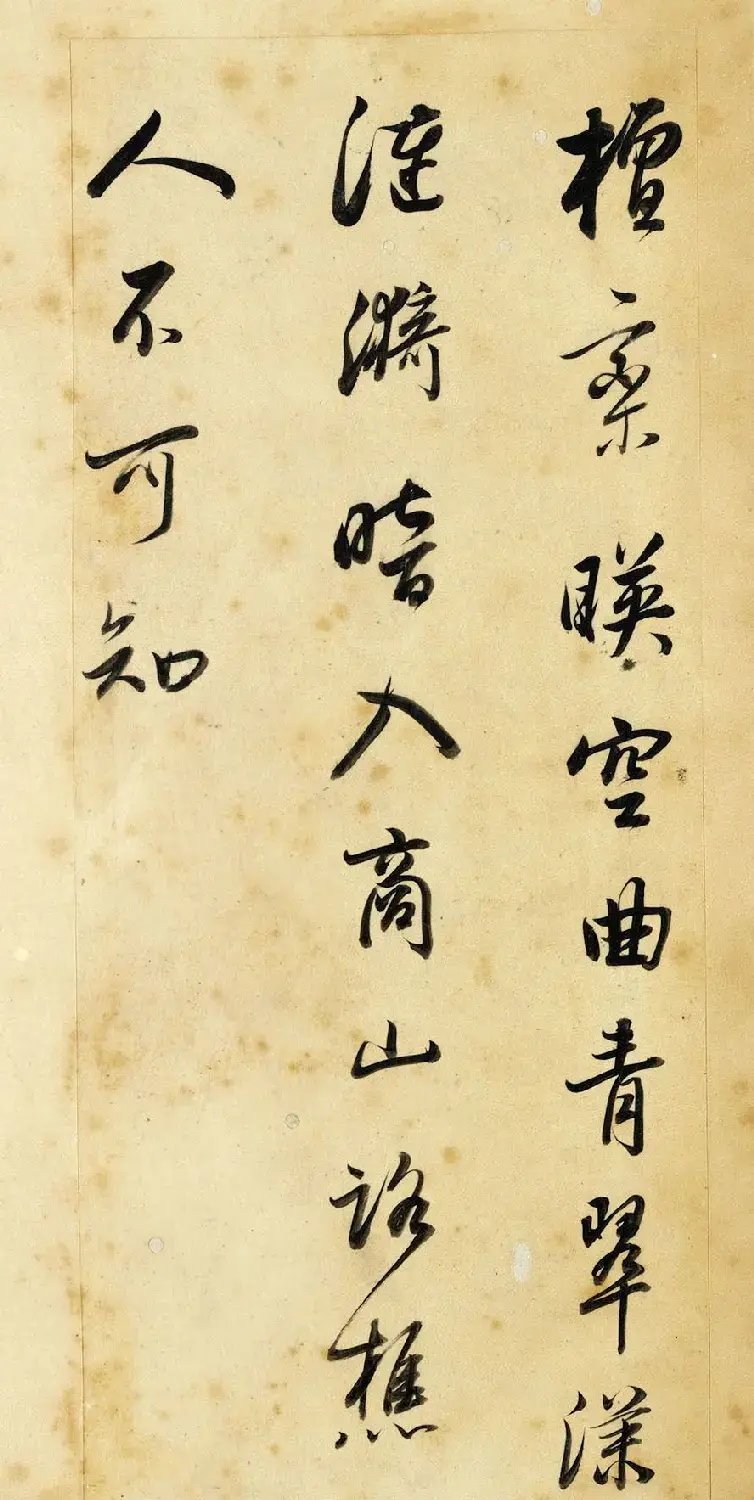 檀栾暎空曲青翠漾
漣漪暗入商山路樵
人不可知